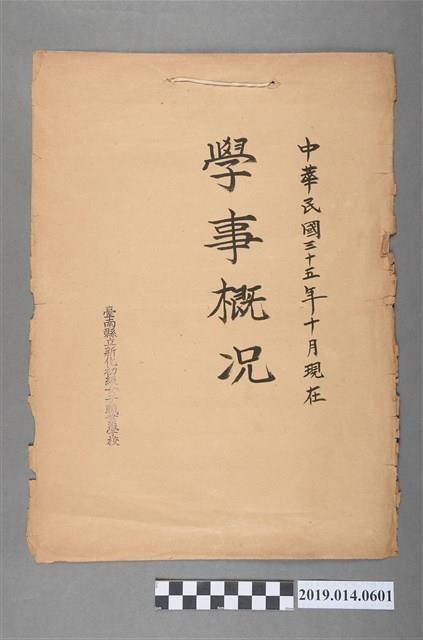 中華民國三十五年十月現在
學事概況
臺南縣立新化初級女子職業學校
2019.014.0601